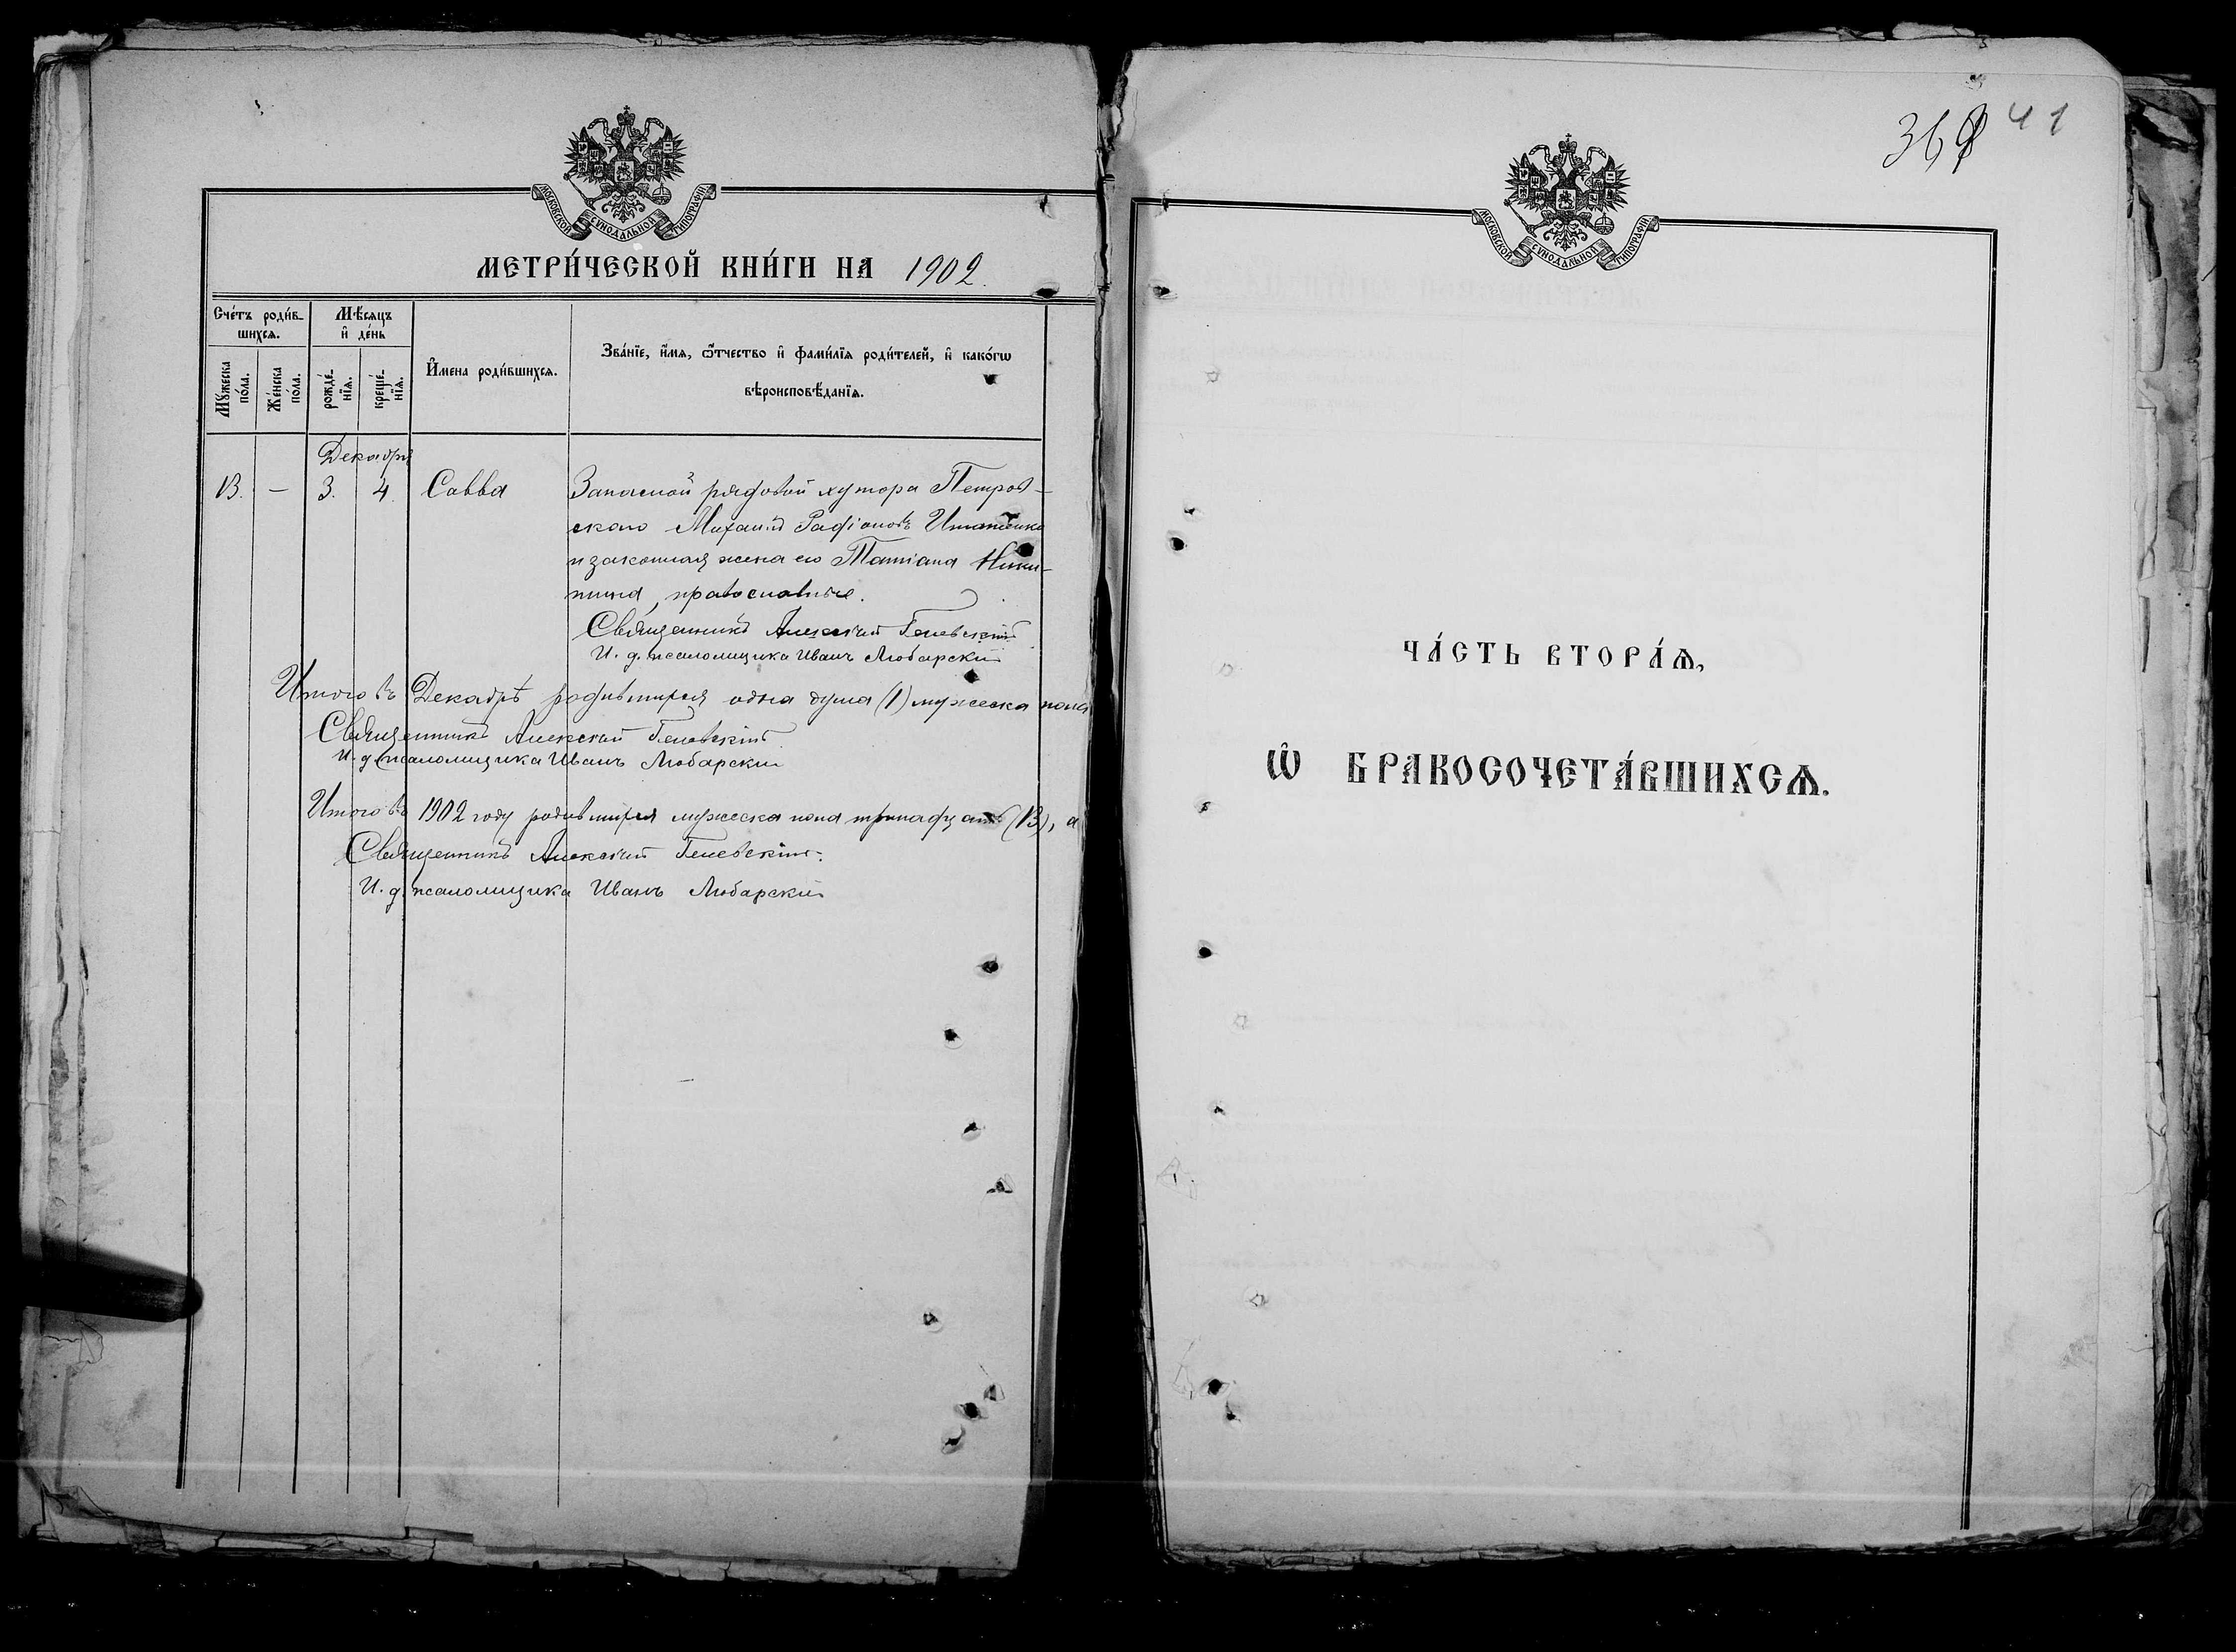 МОСКОВСКОЙ СѴНОДАЛЬНОЙ ТИПОГРАФІИ
МЕТРИ́ЧЕСКОЙ КНИ́ГИ НА 1902.
Сче́тъ роди́в-
шихсѧ.
Мꙋ́жеска
по́ла.
Же́нска
по́ла.
Мѣ́сѧцъ
и҆ де́нь
рожде́-
нїѧ.
креще́-
нїѧ.
И҆мена роди́вшихсѧ.
Зва́нїе, и҆́мѧ, ѻ҆́тчество и҆ фами́лїѧ роди́телей, и҆ како́гѡ
вѣроисповѣ́данїѧ.
Декабрь
13. — 3. 4. Савва Запасной рядовой хутора Петров-
скаго Михаилъ Радіоновъ
и законная жена его Татіана Ники-
тина, православные.
Священникъ Алексѣй
И. д. псаломщика Иванъ Любарскій
Итого въ Декабрѣ родившихся одна душа (1) мужеска пола
Священникъ Алексѣй
И. д. псаломщика Иванъ Любарскій
Итого въ 1902 году родившихся мужеска пола тринадцать (13), а
Священникъ Алексѣй
И. д. псаломщика Иванъ Любарскій
41
МОСКОВСКОЙ СѴНОДАЛЬНОЙ ТИПОГРАФІИ
ЧА́СТЬ ВТОРА́Ѧ,
Ѡ҆ БРАКОСОЧЕТА́ВШИХСѦ.